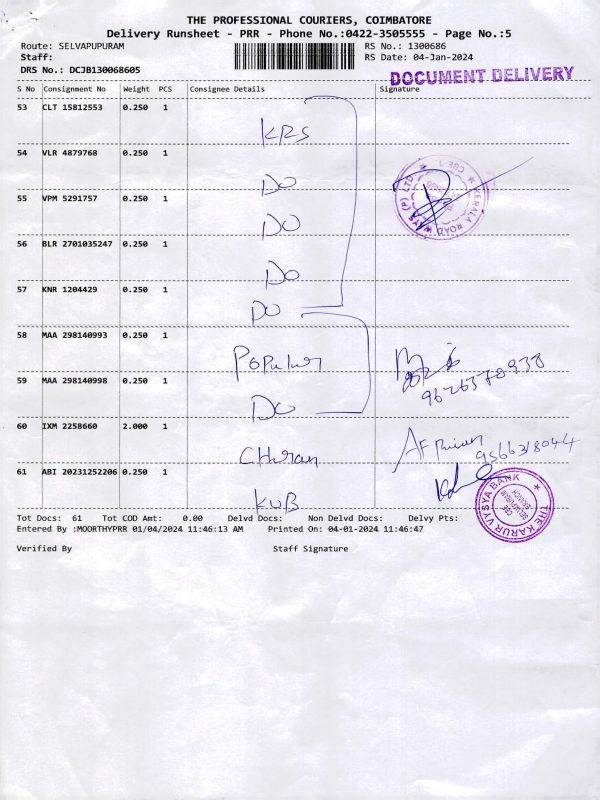 THE PROFESSIONAL COURIERS, COIMBATORE
Delivery Runsheet - PRR - Phone No.:0422-3505555 - Page No.:5
Route: SELVAPUPURAM RS No.: 1300686
Staff: RS Date: 04-Jan-2024
DRS No.: DCJB130068605
DOCUMENT DELIVERY
S No Consignment No Weight PCS Consignee Details Signature
53 CLT 15812553 0.250 1
KRS
54 VLR 4879768 0.250 1
DO
55 VPM 5291757 0.250 1
DO
56 BLR 2701035247 0.250 1
DO
57 KNR 1204429 0.250 1
DO
KERALA ROAD WAYS (P) LTD ★ CBE-1 ★
58 MAA 298140993 0.250 1
Popular
9626370938
59 MAA 298140998 0.250 1
DO
60 IXM 2258660 2.000 1
9566318044
61 ABI 20231252206 0.250 1
KVB
THE KARUR VYSYA BANK ★
SELVAPURAM BRANCH
CBE
Tot Docs: 61 Tot COD Amt: 0.00 Delvd Docs: Non Delvd Docs: Delvy Pts:
Entered By :MOORTHYPRR 01/04/2024 11:46:13 AM Printed On: 04-01-2024 11:46:47
Verified By Staff Signature